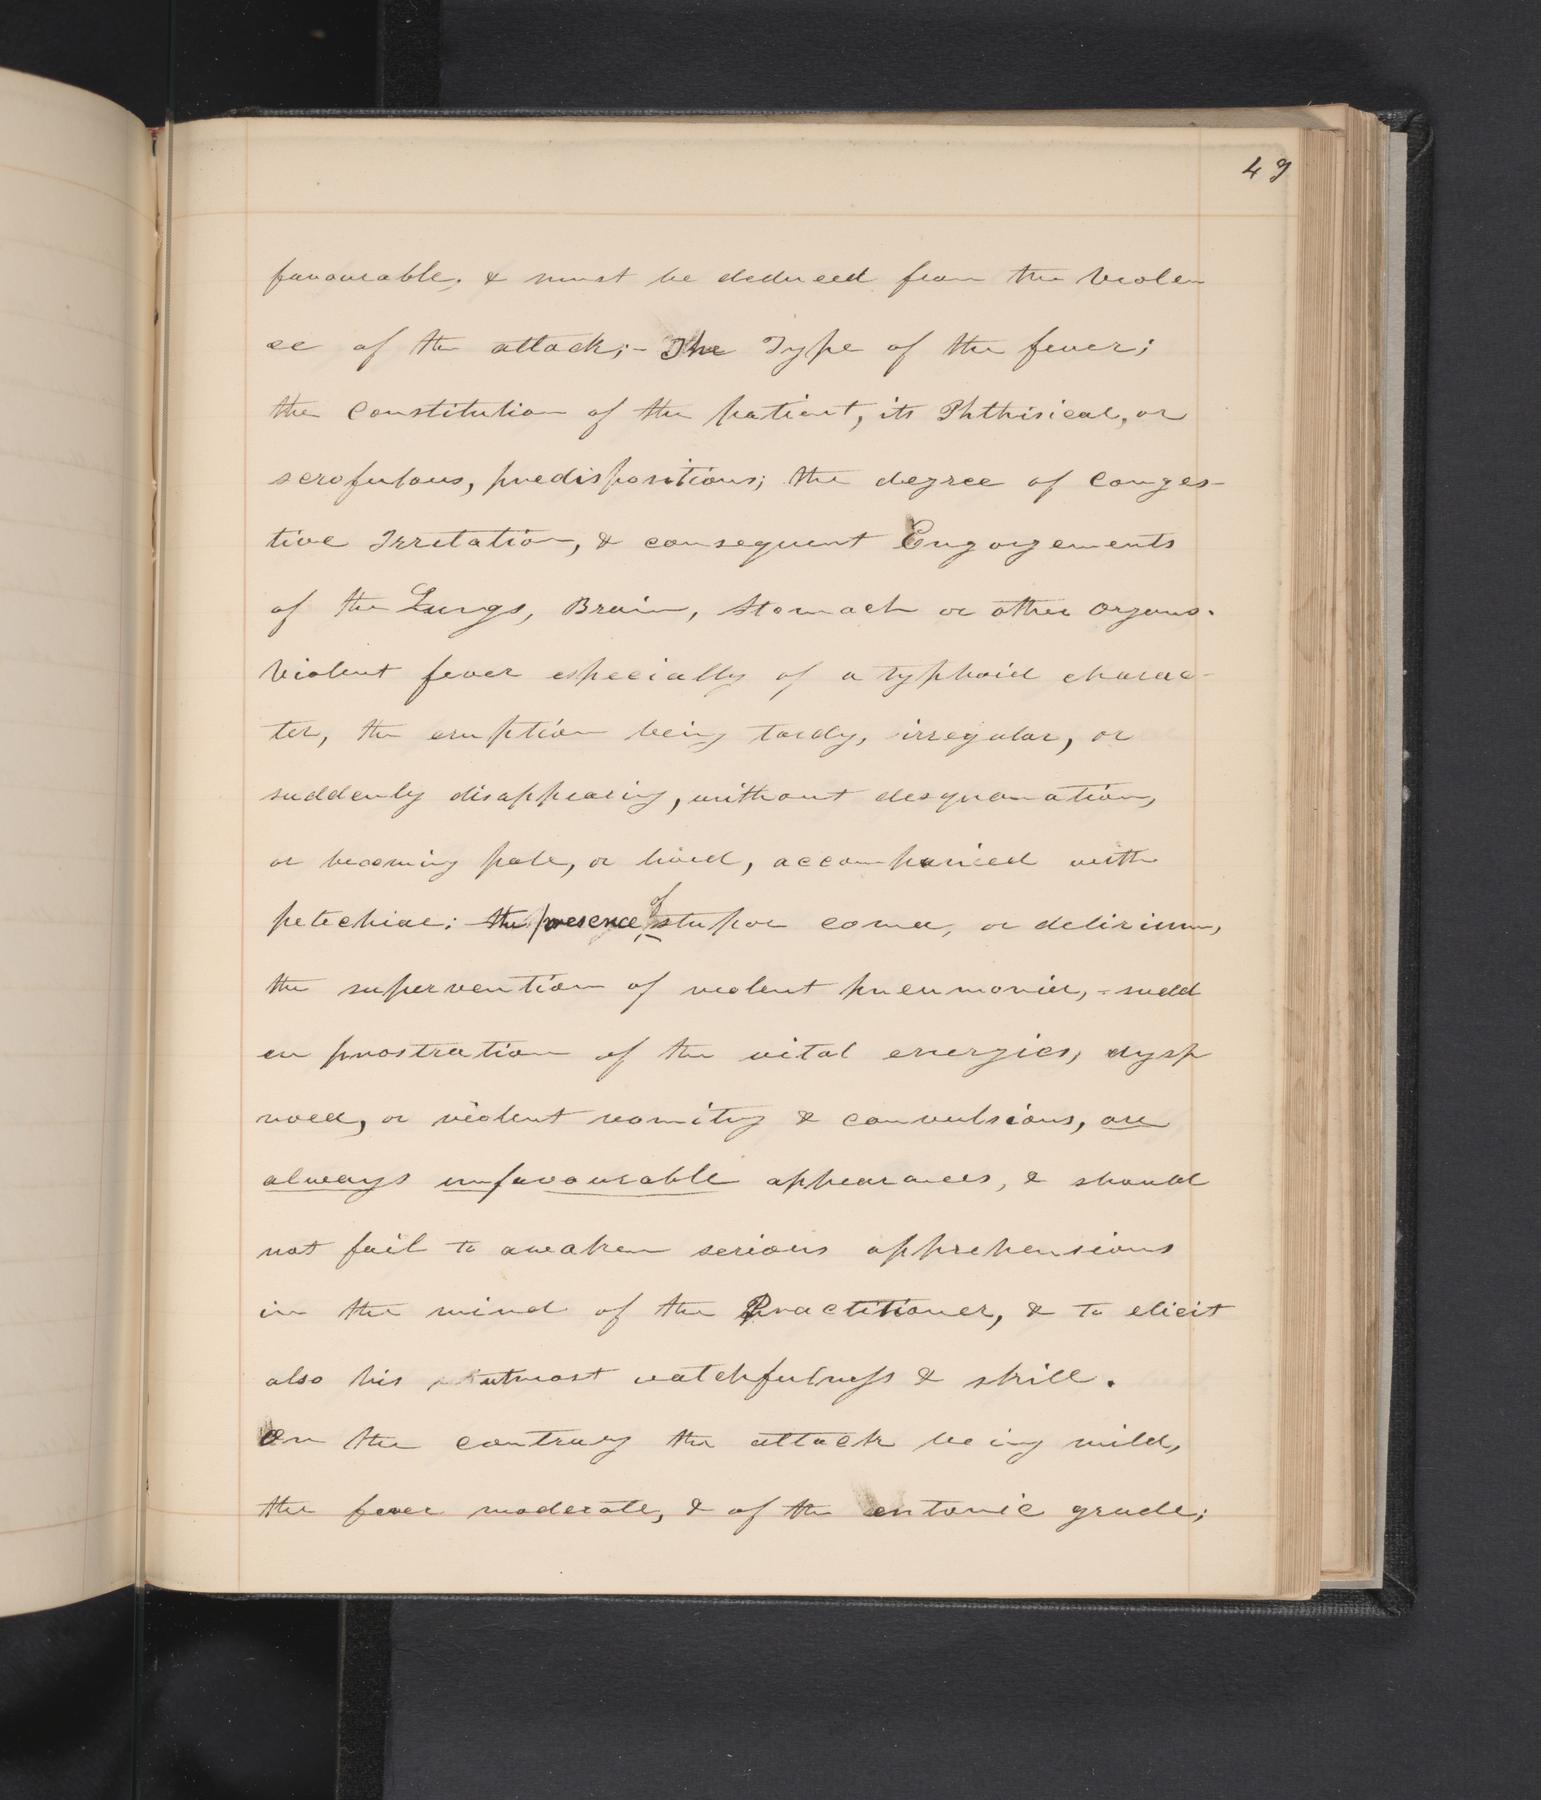 49
favourable, & must be deduced from the violen
ce of the attack;- The Type of the fever;
the constitution of the patient, its Phthisical, or
scrofulous, predispositions; the degree of conges-
tive Irritation, & consequent Engorgements
of the Lungs, Brain, Stomach or other organs.
Violent fever especially of a typhoid charac-
ter, the eruption being tardy, irregular, or
suddenly disappearing, without desquamation,
or becoming pale, or livid, accompanied with
petechiae: the presence of stupor coma, or delirium,
the supervention of violent pneumonia, - sudd
en prostration of the vital energies, dysp
noea, or violent vomiting & convulsions, are
always unfavourable appearances, & should
not fail to awaken serious apprehensions
in the mind of the Practitioner, & to elicit
also his utmost watchfulness & skill.
On the contrary the attack being mild,
the fever moderate, & of the entonic grade;